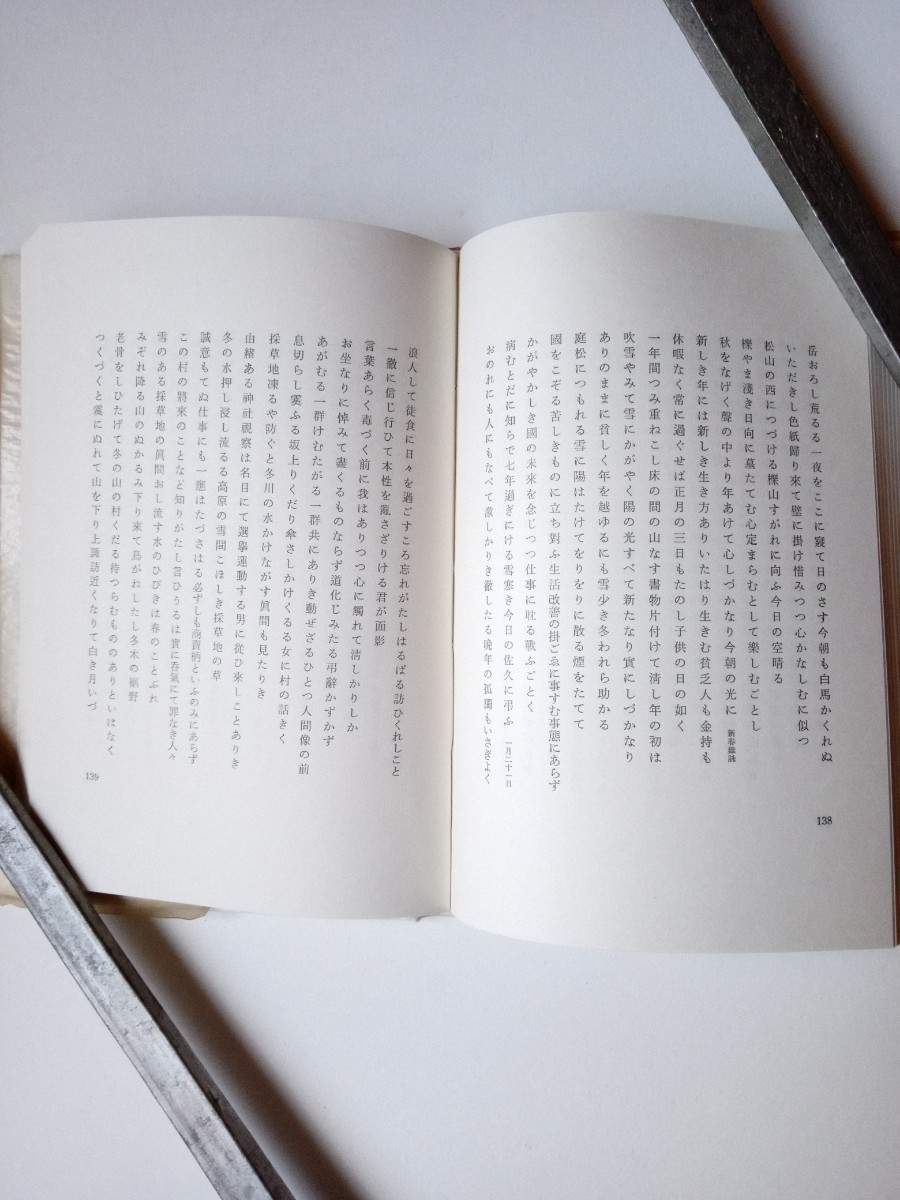 岳おろし荒るる一夜をここに寢て日のさす今朝も白馬かくれぬ
いただきし色紙歸り來て壁に掛け惜みつつ心かなしむに似つ
松山の西につづける櫟山すがれに向ふ今日の空晴る
櫟やま淺き日向に墓たてむ心定まらむとして樂しむごとし
秋をなげく聲の中より年あけて心しづかなり今朝の光に 新春雜詠
新しき年には新しき生き方ありいたはり生きむ貧乏人も金持も
休暇なく常に過ぐせば正月の三日もたのし子供の日の如く
一年間つみ重ねこし床の間の山なす書物片付けて淸し年の初は
吹雪やみて雪にかがやく陽の光すべて新たなり實にしづかなり
ありのままに貧しく年を越ゆるにも雪少き冬われら助かる
庭松につもれる雪に陽はたけてをりをりに散る煙をたてて
國をこぞる苦しきものに立ち對ふ生活改善の掛ごゑに事すむ事態にあらず
かがやかしき國の未來を念じつつ仕事に耻る戰ふごとく
病むとだに知らで七年過ぎにける雪寒き今日の佐久に弔ふ 一月二十一日
おのれにも人にもなべて激しかりき徹したる晩年の孤獨もいさぎよく
138
浪人して徒食に日々を過ごすころ忘れがたしはるばる訪ひくれしごと
一徹に信じ行ひて本性を亂さざりける君が面影
言葉あらく毒づく前に我はありつつ心に觸れて淸しかりしか
お坐なりに悼みて盡くるものならず道化じみたる弔辭かずかず
あがむる一群けむたがる一群共にありき動ぜざるひとつ人間像の前
息切らし霙ふる坂上りくだり傘さしかけくるる女に村の話きく
採草地凍るや防ぐと冬川の水かけながす眞間も見たりき
由緖ある神社視察は名目にて選擧運動する男に從ひ來しことありき
冬の水押し浸し流るる高原の雪間こほしき採草地の草
誠意もてぬ仕事にも一應はたづさはる必ずしも商賣柄といふのみにあらず
この村の將來のことなど知りがたし言ひうるは實に呑氣にて罪なき人々
雪のある採草地の眞間おし流す水のひびきは春のことぶれ
みぞれ降る山のぬかるみ下り來て鳥がねしたし冬木の裾野
老骨をしひたげて冬の山の村くだる待つらむもののありといはなく
つくづくと靄にぬれて山を下り上諏訪近くなりて白き月いづ
139